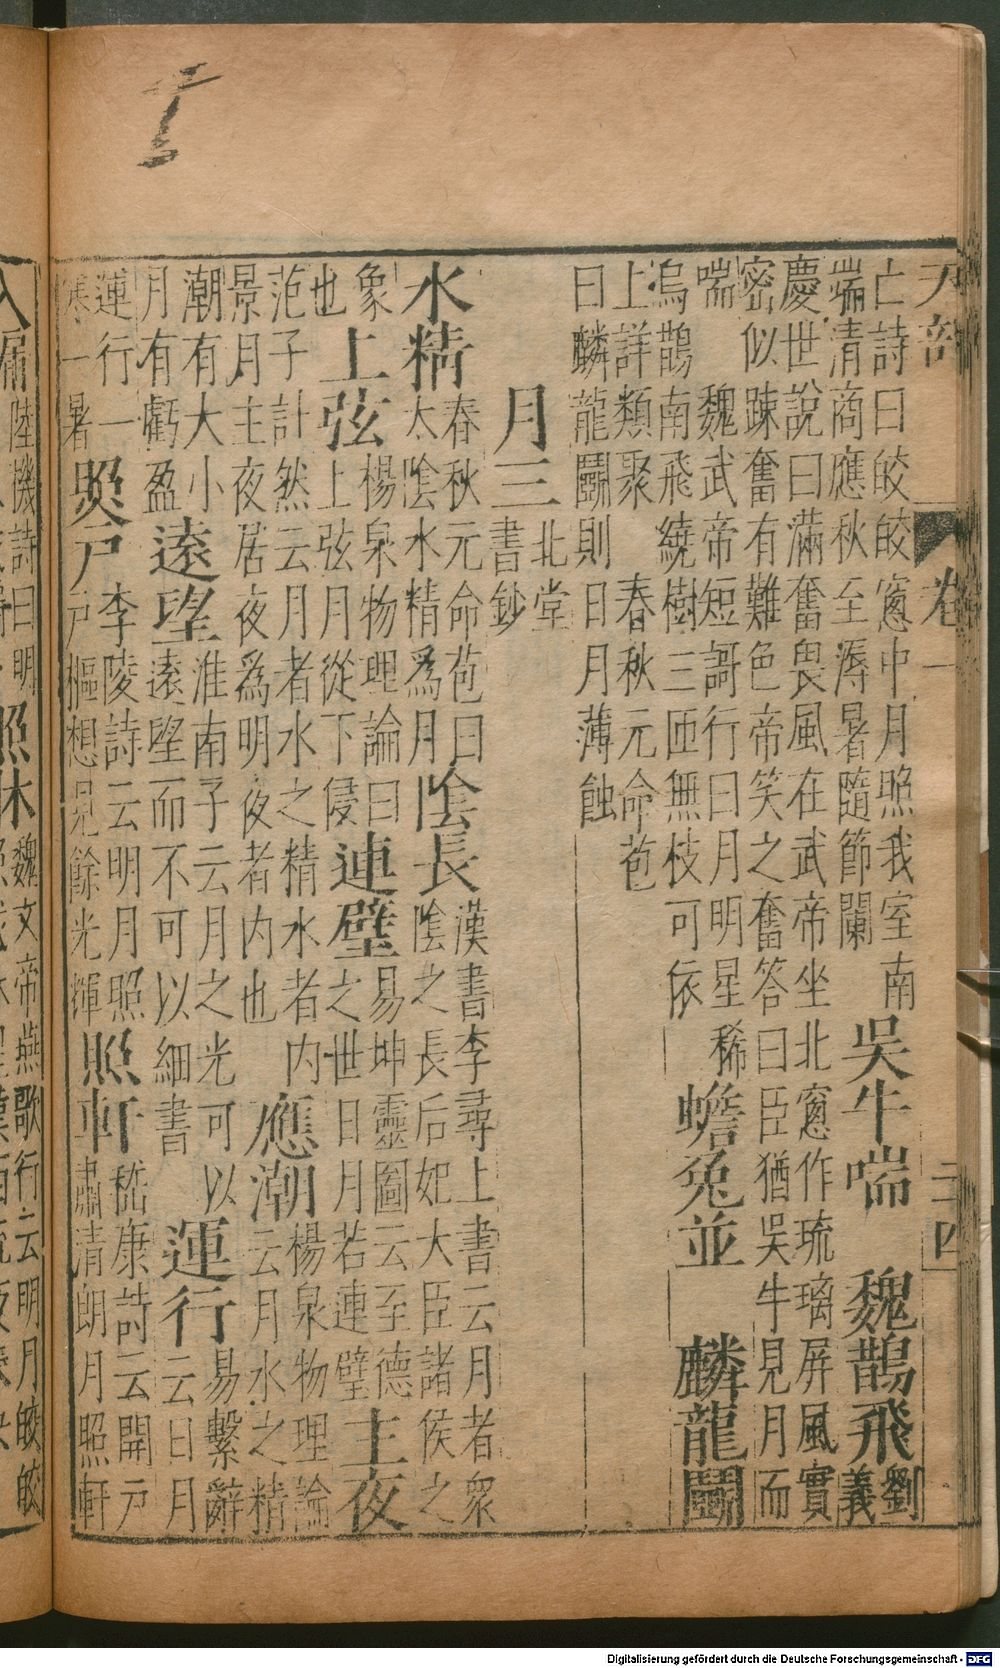 天部 卷一 二四
亡詩曰皎皎窻中月照我室南
端清商應秋至溽暑隨節闌
吳牛喘 魏鵲飛 劉
義
慶世說曰滿奮畏風在武帝坐北窻作琉璃屏風實
密似踈奮有難色帝笑之奮答曰臣猶吳牛見月而
喘 魏武帝短謌行曰月明星稀
烏鵲南飛繞樹三匝無枝可依
蟾兔並 麟龍鬭
上詳類聚 春秋元命苞
曰麟龍鬭則日月薄蝕
月三 北堂
書鈔
水精 春秋元命苞曰
太陰水精爲月
陰長 漢書李尋上書云月者衆
陰之長后妃大臣諸侯之
象
也
上弦 楊泉物理論曰
上弦月從下侵
連璧 易坤靈圖云至德
之世日月若連璧
主夜
范子計然云月者水之精水者内
景月主夜居夜爲明夜者内也
應潮 楊泉物理論
云月水之精
潮有大小
月有虧盈
遠望 淮南子云月之光可以
遠望而不可以細書
運行 易繫辭
云日月
運行一
寒一暑
照戸 李陵詩云明月照
戸樞想見餘光輝
照軒 嵇康詩云開戸
肅清朗月照軒
入牖 陸機詩曰明
照牀 魏文帝燕歌行云明月皎皎
Digitalisierung gefördert durch die Deutsche Forschungsgemeinschaft - DFG